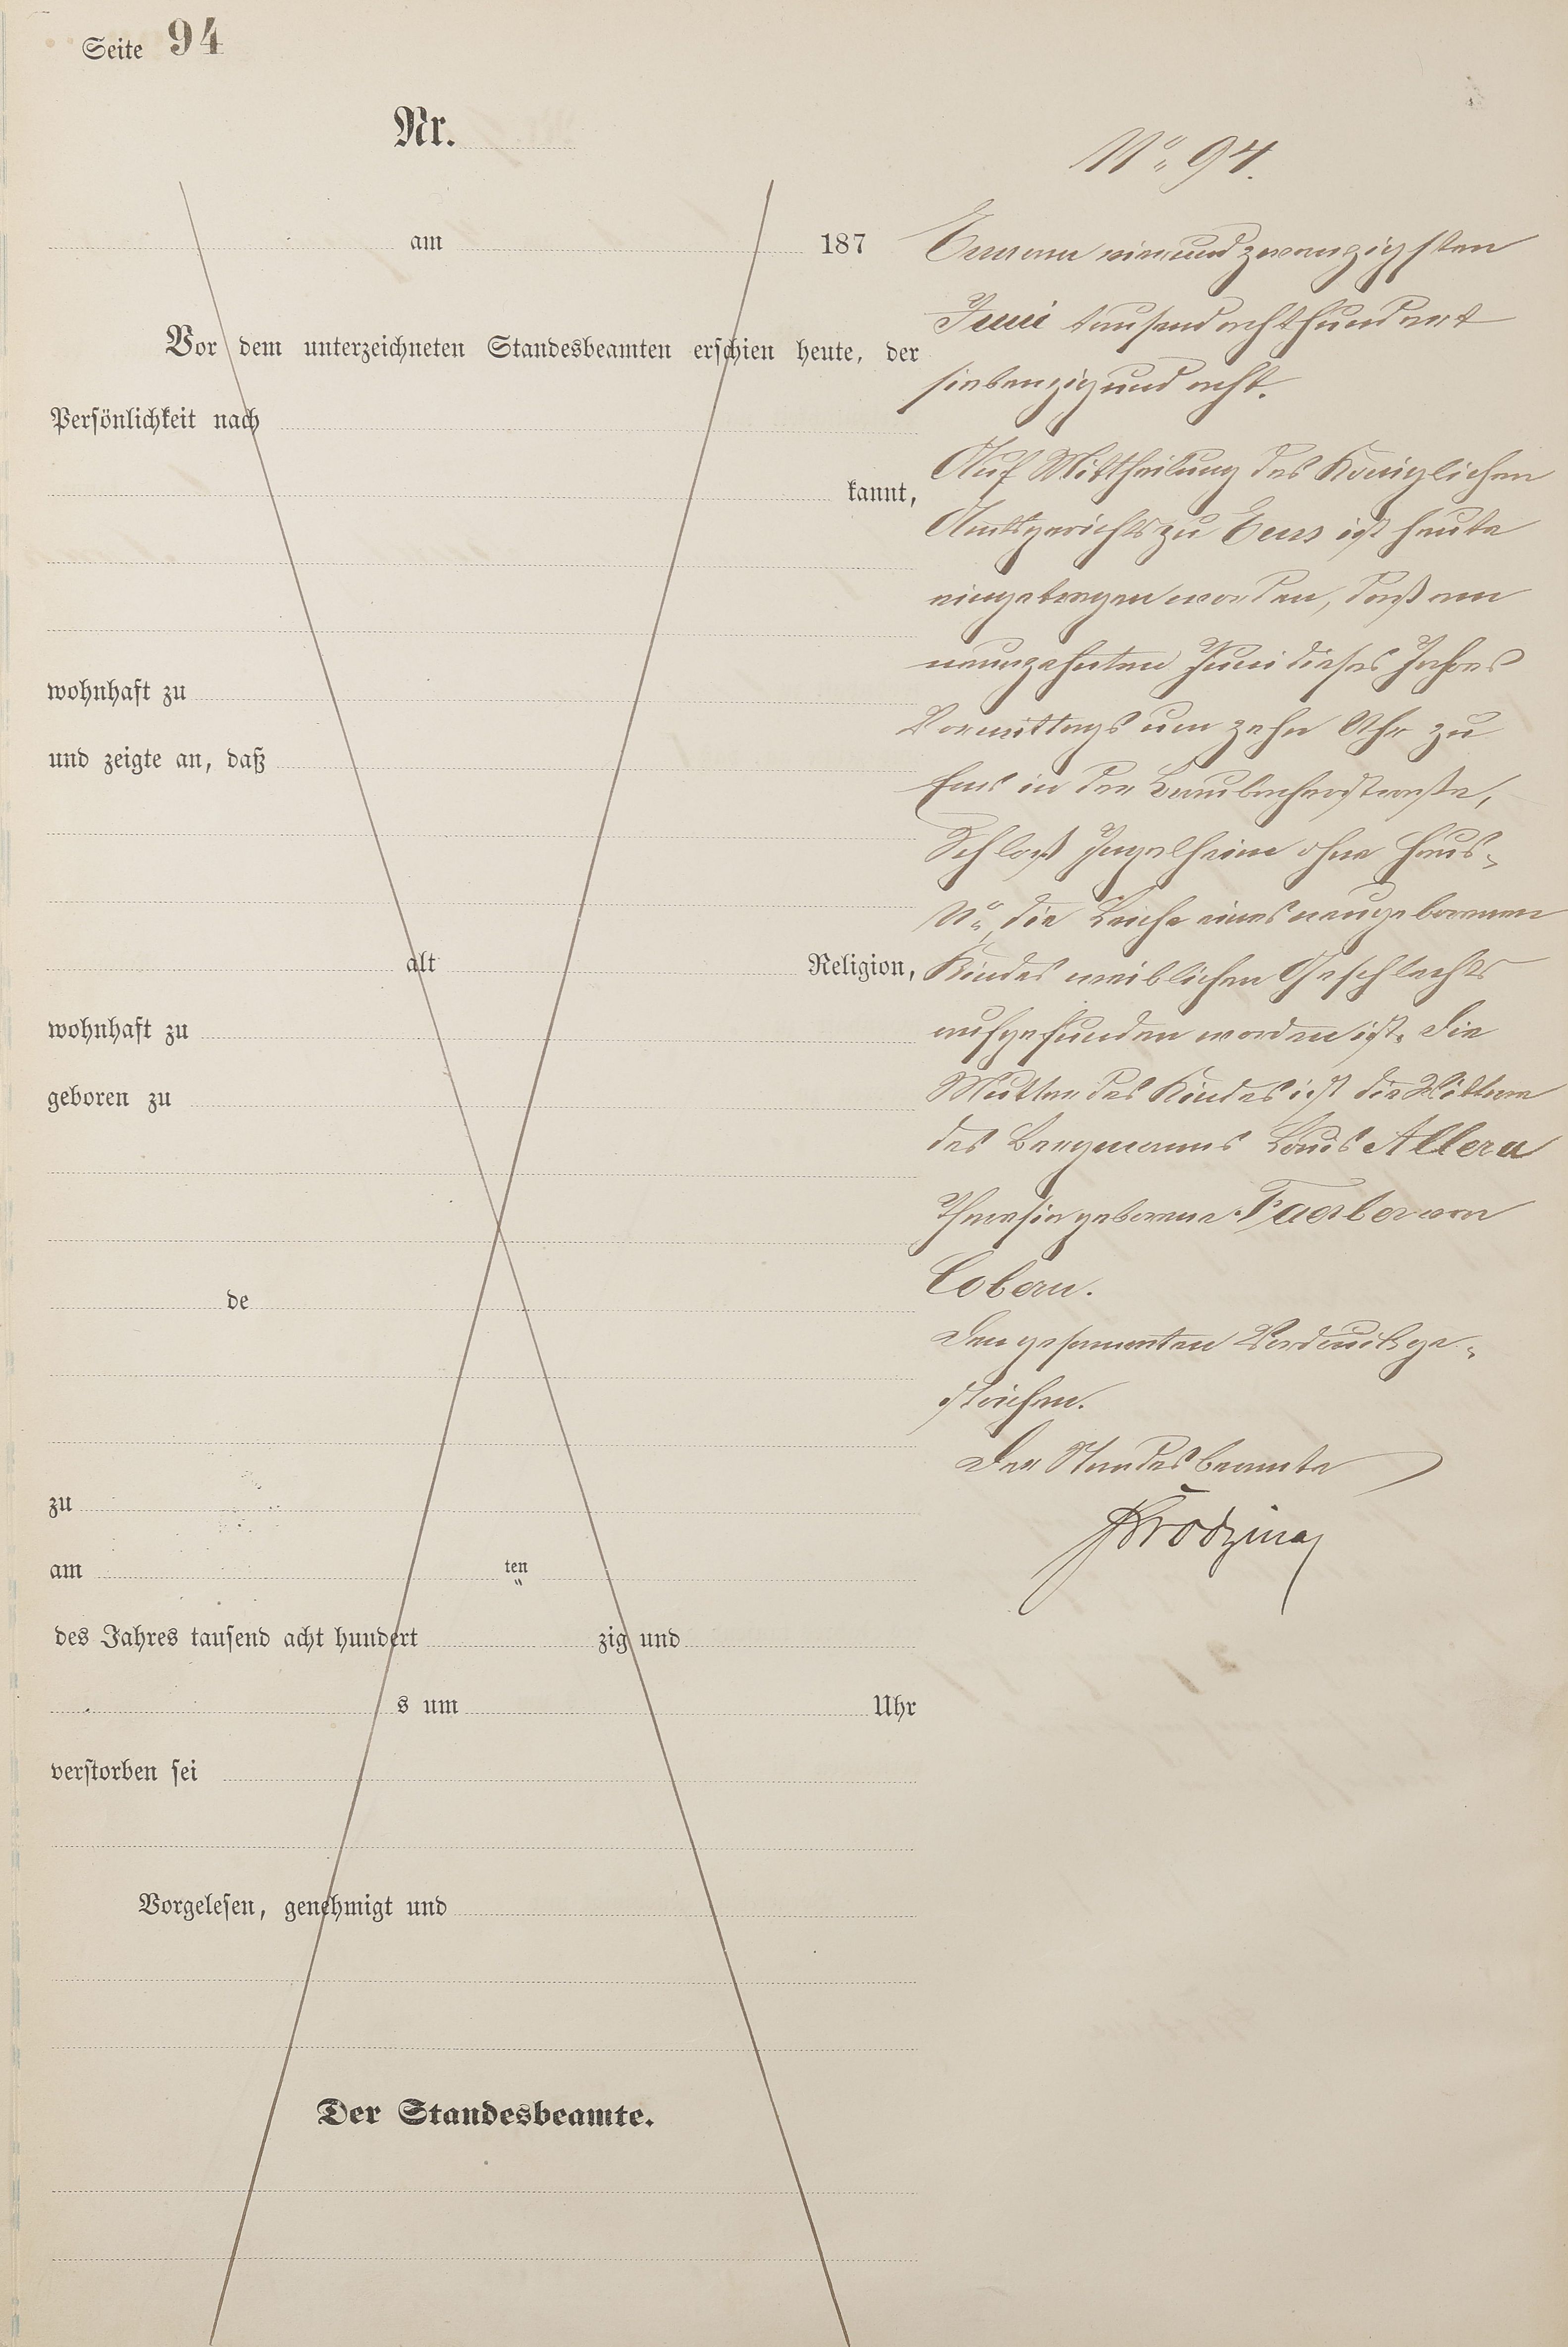 Seite 94
Nr.
am 187
Vor dem unterzeichneten Standesbeamten erschien heute, der
Persönlichkeit nach
kannt,
wohnhaft zu
und zeigte an, daß
alt Religion,
wohnhaft zu
geboren zu
de
zu
am ten
des Jahres tausend acht hundert zig und
s um Uhr
verstorben sei
Vorgelesen, genehmigt und
Der Standesbeamte.
No. 94.
Ems am einundzwanzigsten
Juni tausendachthundert
siebenzigundacht.
Auf Mittheilung des Königlichen
Amtsgerichts zu Ems ist heute
eingetragen worden, daß am
neunzehnten Juni dieses Jahres
Vormittags um zehn Uhr zu
Ems in der Braubacherstraße,
Schloß Ingelheim ohne Haus-
No, die Leiche eines neugeborenen
Kindes weiblichen Geschlechts
aufgefunden worden ist. Die
Mutter des Kindes ist die Wittwe
des Bergmanns Louis
Theresia geborene von
Cobern.
Den gesammten Vordruck ge-
strichen.
Der Standesbeamte